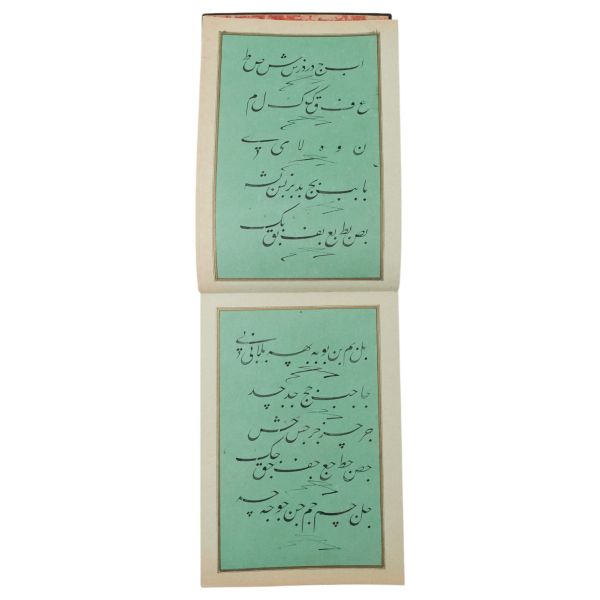 ا ب ج د ر ذ رس س ش ص ط
ع ف ق ک ک ل م
ن و ه لا ی ی
با ببب بج بد بر بس بش
بص بط بع بف بق بک
بل بم بن بو به بهه بلا بی بی
جا جب جج جد جد
جر جر جس جش
جص جط جع جف جق جک
جل جم جم جن جو جه جه